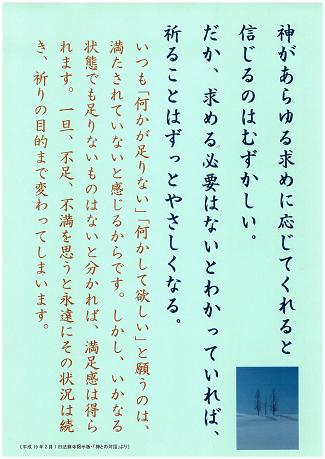 神があらゆる求めに応じてくれると
信じるのはむずかしい。
だか、求める必要はないとわかっていれば、
祈ることはずっとやさしくなる。
いつも「何かが足りない」「何かして欲しい」と願うのは、
満たされていないと感じるからです。しかし、いかなる
状態でも足りないものはないと分かれば、満足感は得ら
れます。一旦、不足、不満を思うと永遠にその状況は続
き、祈りの目的まで変わってしまいます。